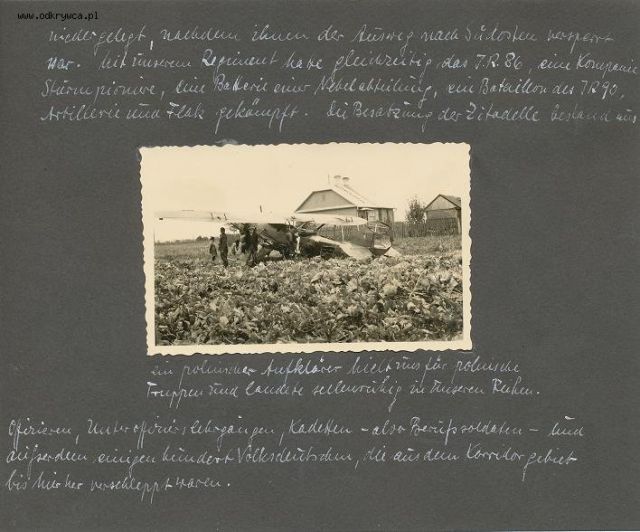 www.odkrywca.pl
niedergelegt, nachdem ihnen der Ausweg nach Südosten versperrt
war. Mit unserem Regiment hatte gleichzeitig das I.R. 86, eine Kompanie
Sturmpioniere, eine Batterie einer Nebelabteilung, ein Bataillon des I.R. 90,
Artillerie und Flak gekämpft. Die Besatzung der Zitadelle bestand aus
Ein polnischer Aufklärer hielt uns für polnische
Truppen und landete seelenruhig in unseren Reihen.
Offizieren, Unteroffizierslehrgängen, Kadetten - also Berufssoldaten - und
außerdem einigen hundert Volksdeutschen, die aus dem Korridorgebiet
bis hierher verschleppt waren.